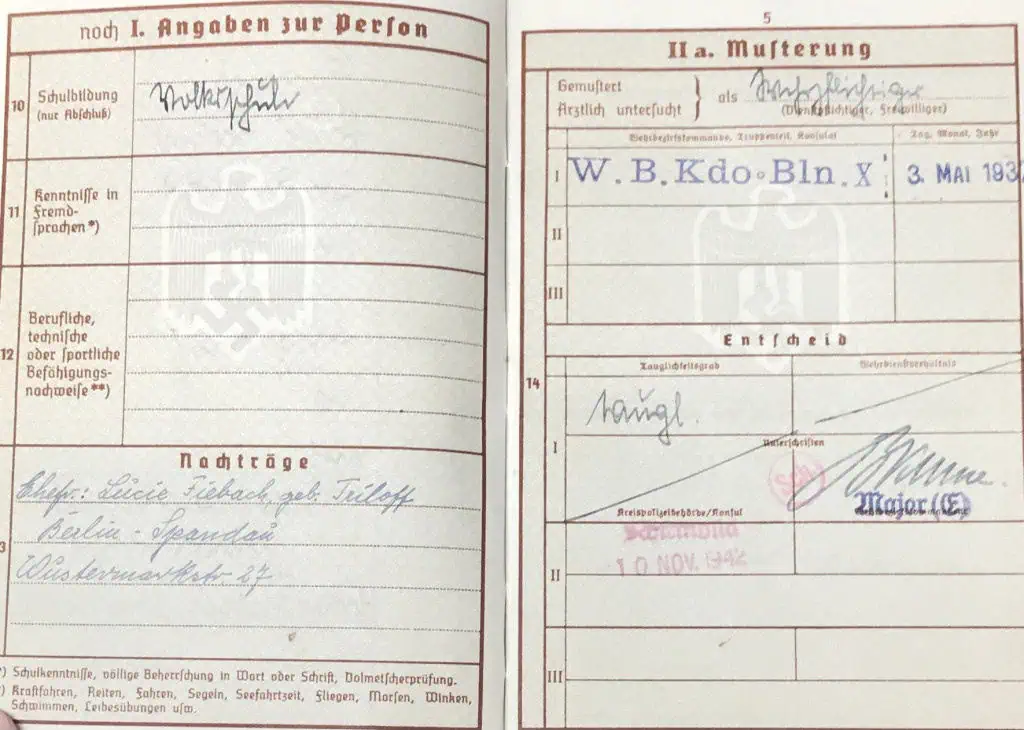 noch I. Angaben zur Person
10
Schulbildung
(nur Abschluß)
Volksschule
11
Kenntnisse in
Fremd-
sprachen *)
12
Berufliche,
technische
oder sportliche
Befähigungs-
nachweise **)
Nachträge
3
Ehefr.: Lucie Fiebach, geb. Triloff
Berlin - Spandau
Wustermarkstr 27
*) Schulkenntnisse, völlige Beherrschung in Wort oder Schrift, Dolmetscherprüfung.
*) Kraftfahren, Reiten, Fahren, Segeln, Seefahrtzeit, Fliegen, Morsen, Winken,
Schwimmen, Leibesübungen usw.
5
II a. Musterung
Gemustert
Ärztlich untersucht
als
Wehrpflichtiger
(Dienstpflichtiger, Freiwilliger)
Wehrbezirkskommando, Truppenteil, Konsulat
Tag, Monat, Jahr
I
W. B. Kdo. Bln. X
3. MAI 193
II
III
Entscheid
14
Tauglichkeitsgrad
Wehrdienstverhältnis
taugl.
I
Unterschriften
Major (E)
Kreispolizeibehörde/Konsul
10 NOV. 1942
II
III